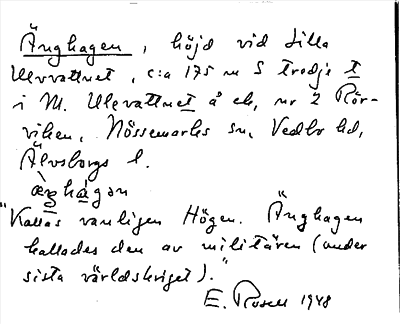 Änghagen, höjd vid Lilla
Ulevattnet, c:a 175 m S tredje t
i M. Ulevattnet å ek, nr 2 Rör-
viken, Nössemarks sn, Vedbo hd,
Älvsborgs l.
"Kallas vanligen Högen. Änghagen
kallades den av militären (under
sista världskriget)."
E. Rosell 1948